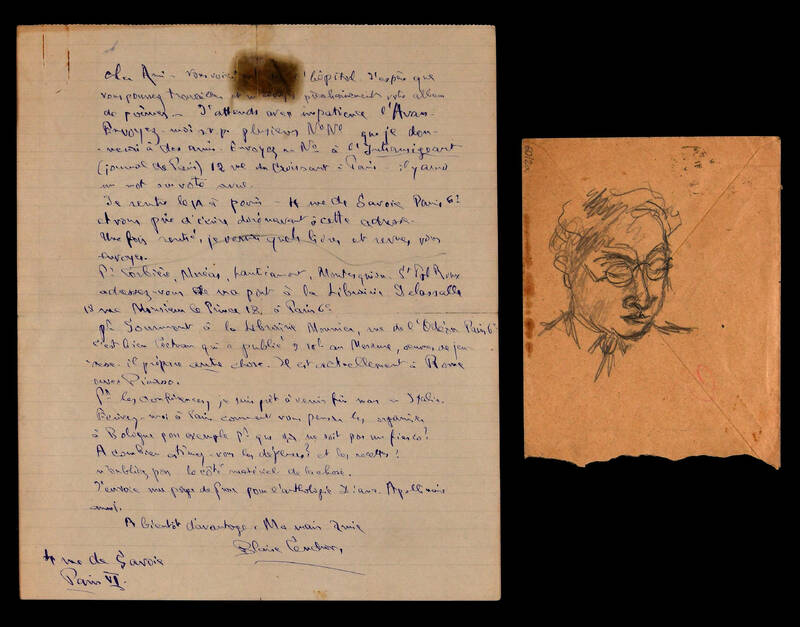 Cher Ami – Vous voici l'hôpital. J'espère que
vous pourrez travailler et prochainement votre album
de poèmes – J'attends avec impatience l'Avan-
Envoyez-moi plusieurs Nos que je don-
nerai à des amis. Envoyez 1 No à l'
(journal de Paris) 12 rue du Croissant à Paris – il y aura
un mot sur votre
Je rentre à Paris – 4 rue de Savoie Paris 6e
et vous prie d'écrire dorénavant à cette adresse.
Une fois rentré, je verrai quels livres et revues vous
envoyer.
Pr Corbière, Moréas, Lautréamont, Montesquiou, St Pol Roux
adressez-vous de ma part à la Librairie Delassalle
18 rue Monsieur le Prince 18, à Paris 6e
Pr à la Librairie Monnier, rue de l'Odéon Paris 6e
c'est bien Cocteau qui a publié au Mercure, œuvres de jeu-
nesse. il prépare autre chose. Il est actuellement à Rome
avec Picasso.
Pr les conférences, je suis prêt à venir fin mars en Italie.
Ecrivez-moi à Paris comment vous pensez les organiser
à Bologne par exemple pr que ça ne soit pas un fiasco?
A combien estimez-vous les dépenses? et les recettes?
n'oubliez pas le côté matériel de la chose.
J'envoie mes pages de prose pour l'anthologie Apollinaire
aussi.
A bientôt davantage. Ma main amie
Blaise Cendrars
4 rue de Savoie
Paris VI.